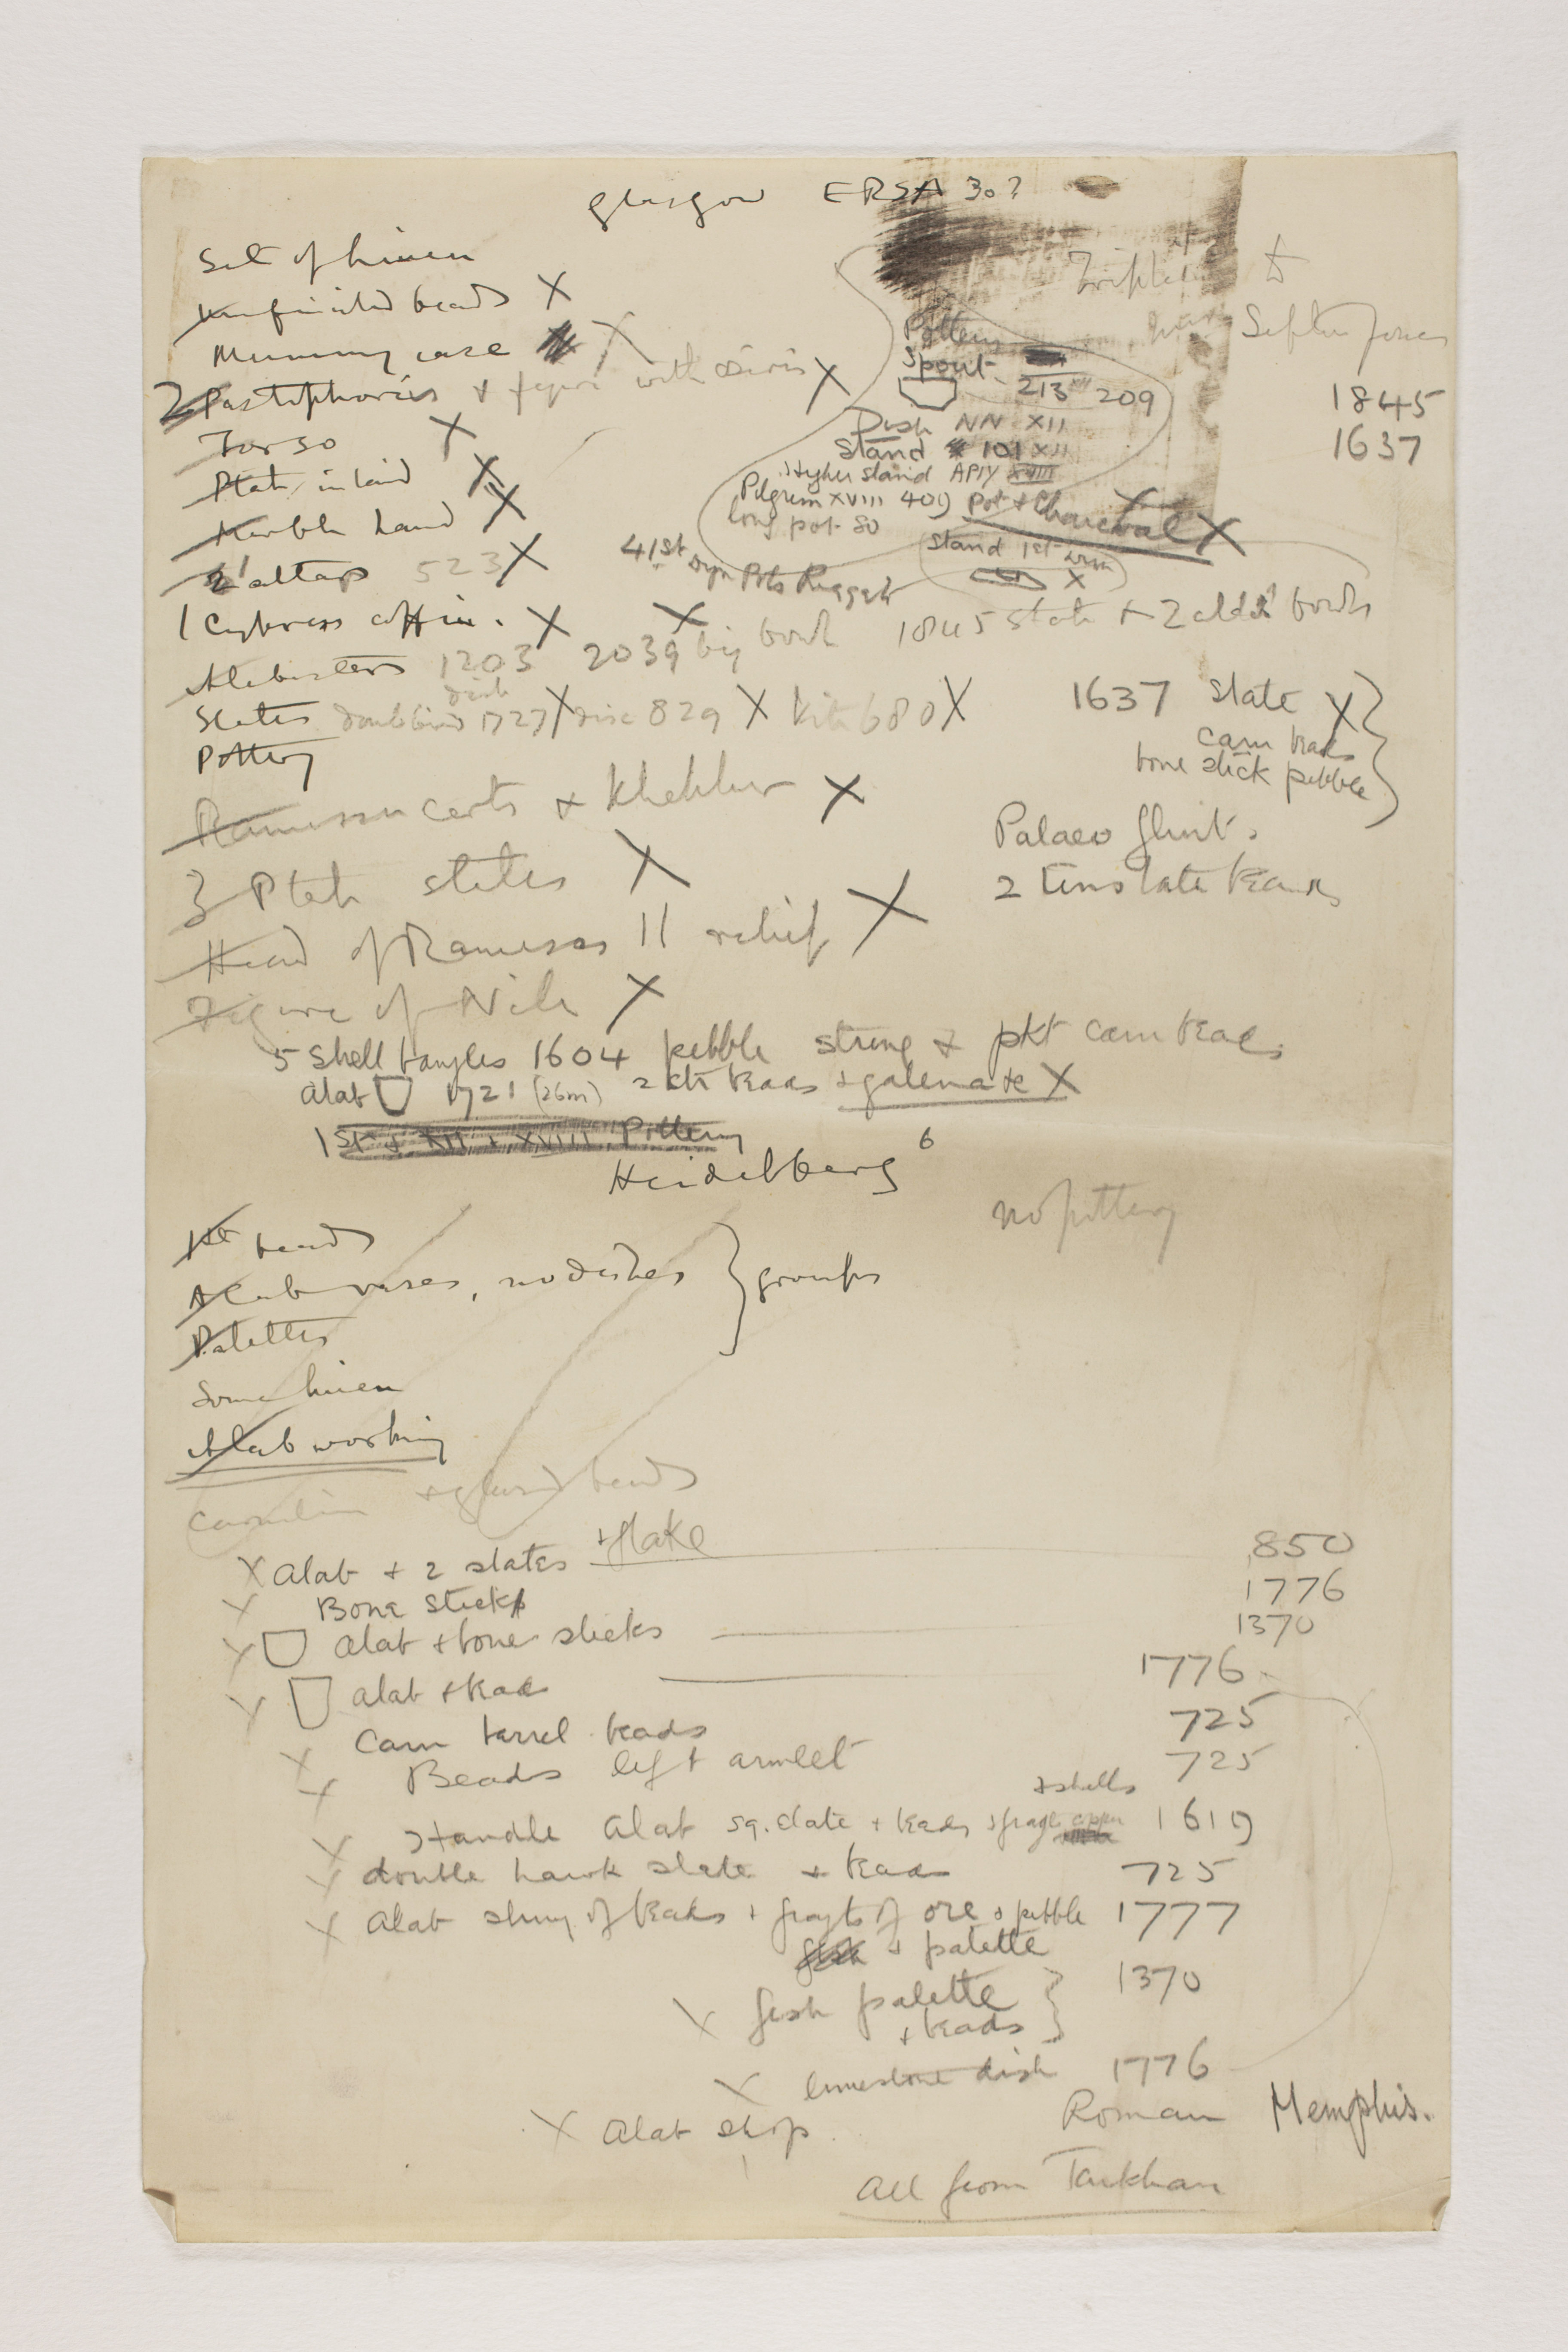 Glasgow ERSA 30?
Set of linen
Unfinished beads X
Mummy case X
2 Pastophoris + figure with Osiris X
Torso X
Ptah inlaid X
Marble hand X
2 altars 523 X
1 Cypress coffin. X
Alabasters 1203 2039 big bowl 1845 slate + 2 alab bowls
Slates double bird dish 1727 X disc 829 X kite 680 X
Pottery
Triplet to
Septr Jones
Pottery
Spout
213 XII 209
Dish NN XII
Stand 101 XII
Higher stand AP1Y XVIII
Pilgrim XVIII 409 Pot + Charcoal X
long pot 80
Stand 1st dyn X
4 1st dyn Pots Riqqeh X
1845
1637
1637 Slate X
carn beads
bone stick pebble
Ramessu carts + Khehlur X
3 Ptah steles X
Head of Rameses II relief X
Figure of Nile X
Palaeo flint.
2 tins late beads
5 Shell bangles 1604 pebble string + pkt carn beads
Alab 1721 (26m) 2 kts beads + galena te X
1st + XII + XVIII Pottery
Heidelberg 6
no pottery
1st beads
Alab vases, no dishes } groups
Palettes
Some linen
Alab working
Carnelian + glazed beads
X Alab + 2 slates + flake 850
X Bone Stick 1776
X Alab + bone sticks 1370
X Alab + beads 1776
X Carn barrel beads 725
X Beads left armlet 725
X Handle Alab sq. slate + beads + frags copper + shells 1619
X double hawk slate + beads 725
X Alab string of beads + fragts of ore + pebble 1777
fish + palette
X fish palette + beads } 1370
X limestone dish 1776
X Alab shop. Roman Memphis.
All from Tarkhan